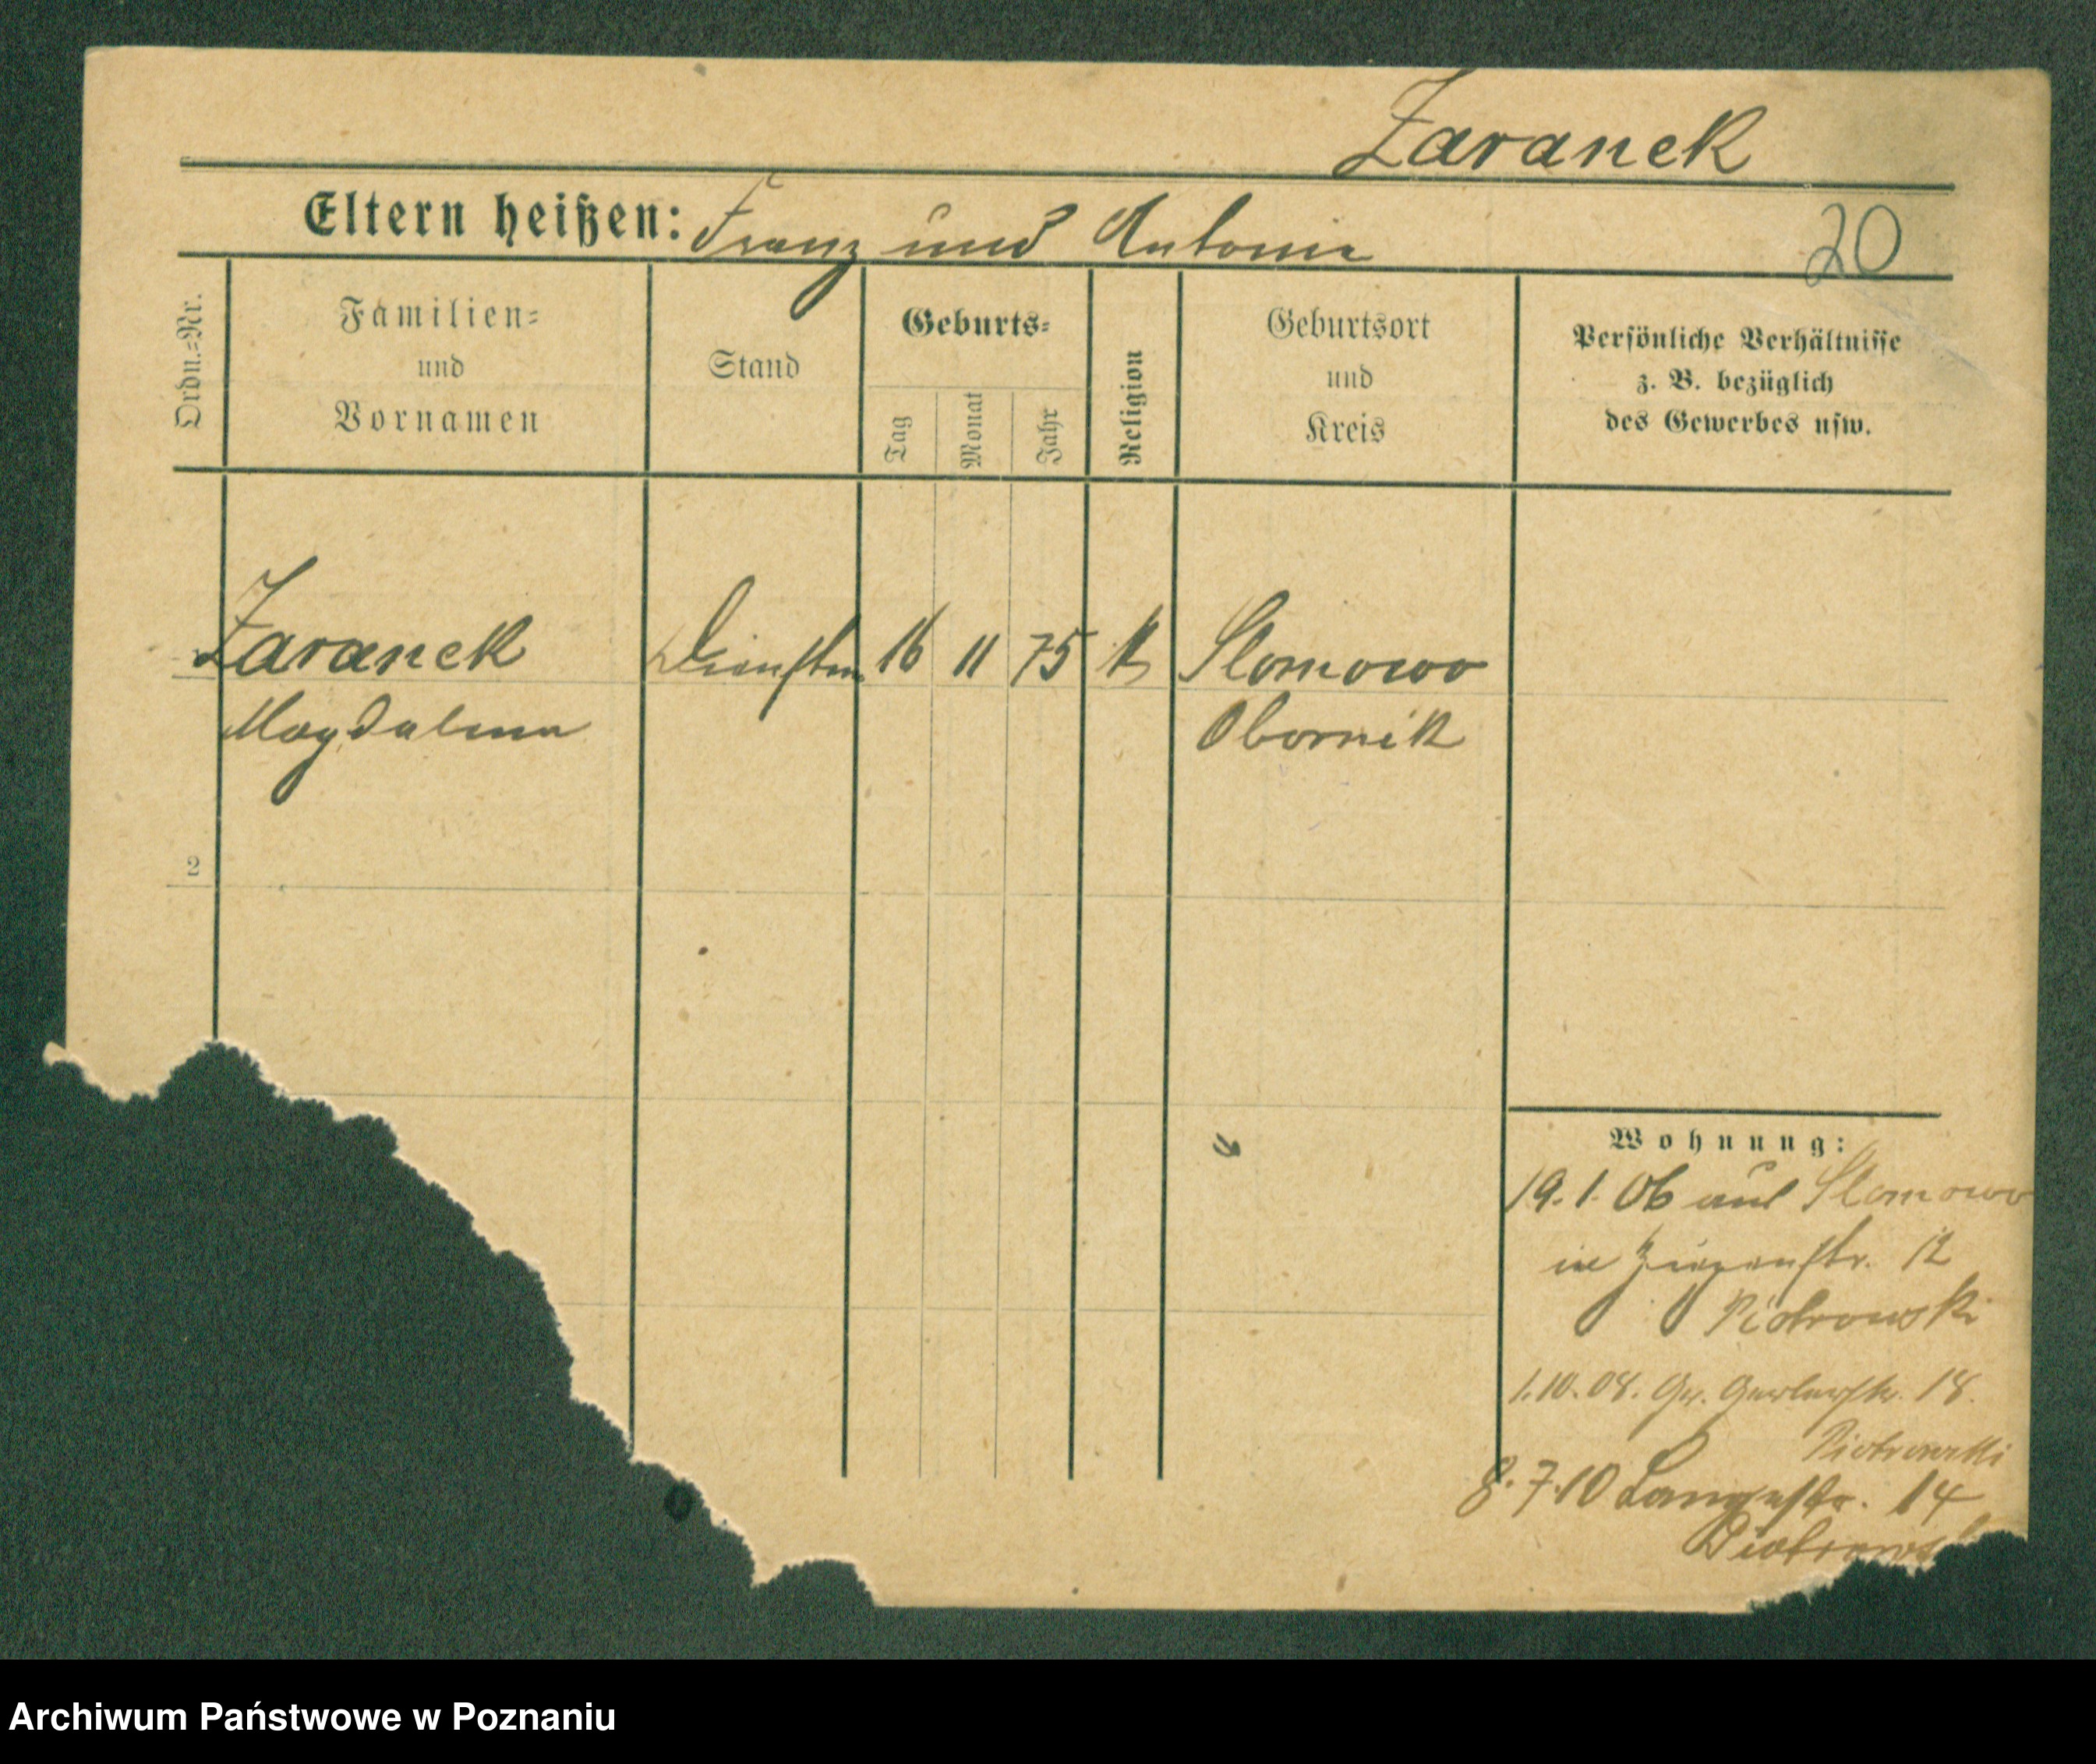 Zaranek
Eltern heißen: Franz und Antonie
20
Ordn.=Nr.
Familien=
und
Vornamen
Stand
Geburts=
Tag
Monat
Jahr
Religion
Geburtsort
und
Kreis
Persönliche Verhältnisse
z. B. bezüglich
des Gewerbes usw.
Zaranek 16 11 75 K Slomowo
Magdalena Obornik
2
Wohnung:
19.1.06 aus Slomowo
in 12
Piotrowski
1.10.08. Gr. Gerberstr. 18.
Piotrowski
8.7.10 Langestr. 14
Piotrows
Archiwum Państwowe w Poznaniu